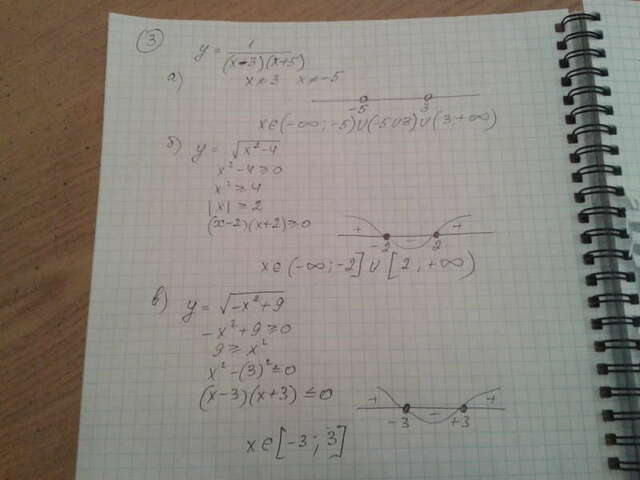 3
y = 1/((x-3)(x+5))
а) x≠3 x≠-5
-5 3
x∈(-∞; -5)∪(-5∪3)∪(3; +∞)
б) y = √(x²-4)
x²-4≥0
x²≥4
|x|≥2
(x-2)(x+2)≥0
+ - +
-2 2
x∈(-∞; -2]∪[2; +∞)
в) y = √(-x²+9)
-x²+9≥0
9≥x²
x²-(3)²≤0
(x-3)(x+3)≤0
+ - +
-3 +3
x∈[-3; 3]